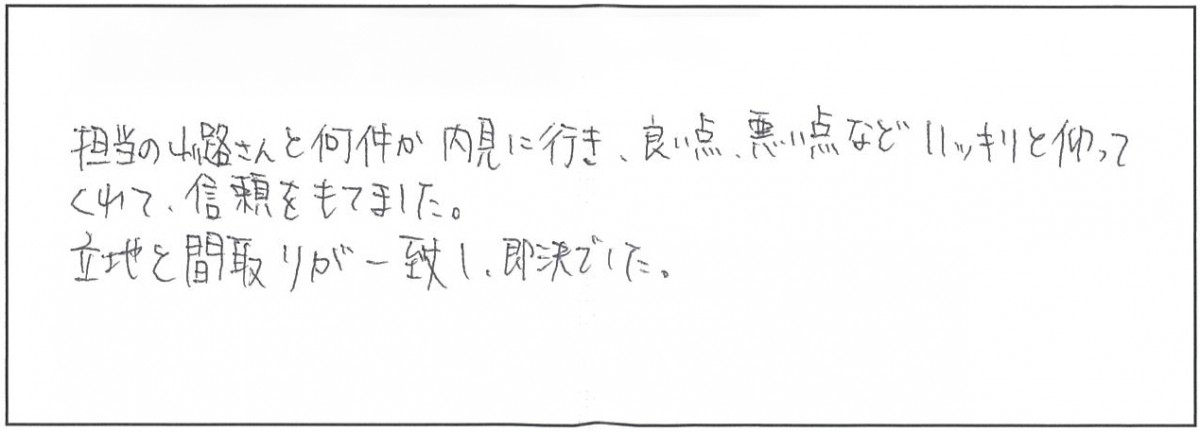 担当の山路さんと何件か内見に行き、良い点、悪い点などハッキリと仰って
くれて、信頼をもてました。
立地と間取りが一致し、即決でした。